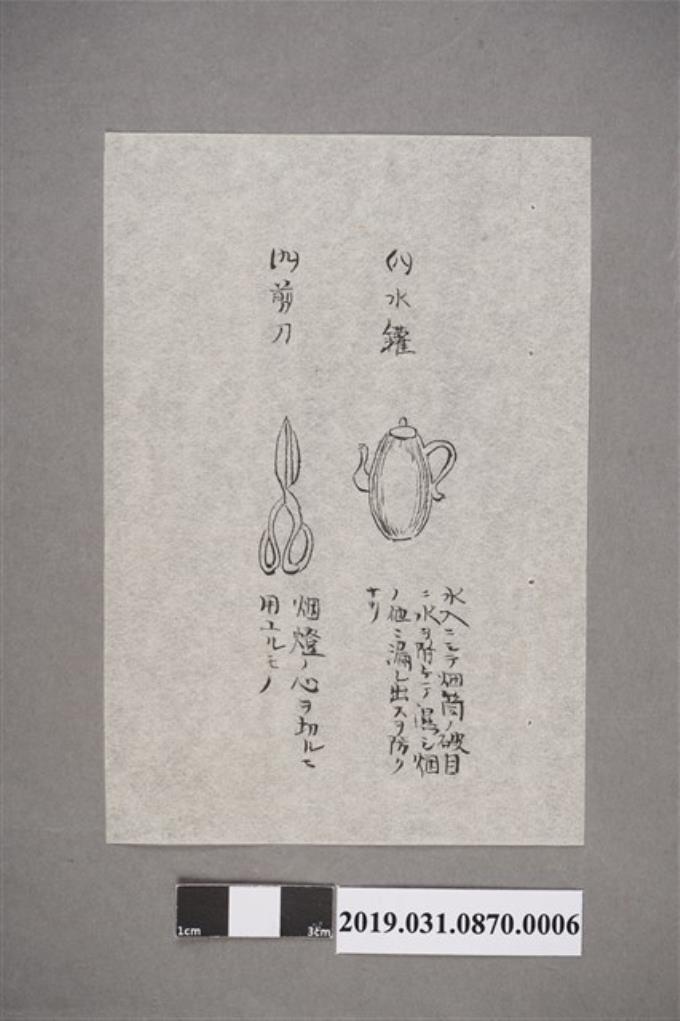 (八) 水罐
水入ニシテ烟筒ノ破目
ニ水ヲ附ケテ濕シ烟
ノ他ニ漏レ出スヲ防グ
ナリ
(九) 剪刀
烟燈ノ心ヲ切ルニ
用エルモノ
1cm
3cm
2019.031.0870.0006